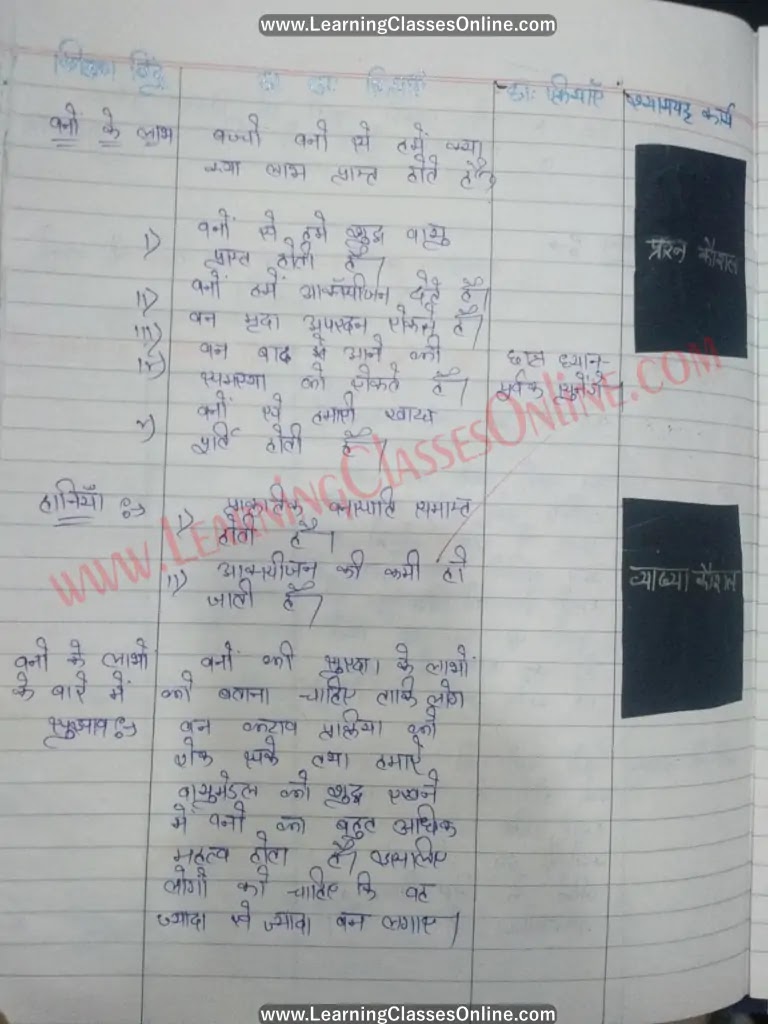 www.LearningClassesOnline.com
शिक्षण बिंदु छा. क्रियाएँ श्यामपट्ट कार्य
वनों के लाभ
बच्चों वनों से हमें क्या
क्या लाभ प्राप्त होते है।
i) वनों से हमे शुद्ध वायु
प्राप्त होती है।
ii) वनों हमें आक्सीजन देते है।
iii) वन मृदा अपरदन रोकने है।
iv) वन बाढ़ के आने की
समस्या को रोकते है।
v) वनों से हमारी खाद्य
पूर्ति होती है।
छात्र ध्यान-
पूर्वक सुनेंगे।
प्रश्न कौशल
हानियाँ :->
i) प्राकृतिक वनस्पति समाप्त
होती है।
ii) आक्सीजन की कमी हो
जाती है।
व्याख्या कौशल
वनों के लाभों
के बारे में
सुझाव :->
वनों की सुरक्षा के लाभों
को बताना चाहिए ताकि लोग
वन कटाव प्रक्रिया को
रोक सके तथा हमारे
वायुमंडल को शुद्ध रखने
में वनों का बहुत अधिक
महत्व होता है। इसलिए
लोगों को चाहिए कि वह
ज्यादा से ज्यादा वन लगाए।
www.LearningClassesOnline.com
www.LearningClassesOnline.com